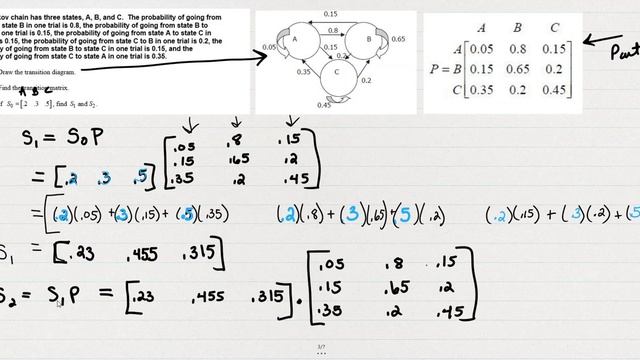 kov chain has three states, A, B, and C. The probability of going from
state B in one trial is 0.8, the probability of going from state B to
one trial is 0.15, the probability of going from state A to state C in
s 0.15, the probability of going from state C to state B in one trial is 0.2, the
y of going from state B to state C in one trial is 0.15, and the
y of going from state C to state A in one trial is 0.35.
Draw the transition diagram.
Find the transition matrix.
A B C
If S₀ = [.2 .3 .5], find S₁ and S₂.
0.15
A 0.8 B
0.05 0.15 0.2 0.65
0.35 C 0.2
0.45
A B C
A 0.05 0.8 0.15
P = B 0.15 0.65 0.2
C 0.35 0.2 0.45
S₁ = S₀P
.05 .8 .15
= [.2 .3 .5] .15 .65 .2
.35 .2 .45
= [(.2)(.05) + (.3)(.15) + (.5)(.35) (.2)(.8) + (.3)(.65) + (.5)(.2) (.2)(.15) + (.3)(.2) + (.5
S₁ = [.23 .455 .315]
.05 .8 .15
S₂ = S₁P = [.23 .455 .315] · .15 .65 .2
.35 .2 .45
3/7